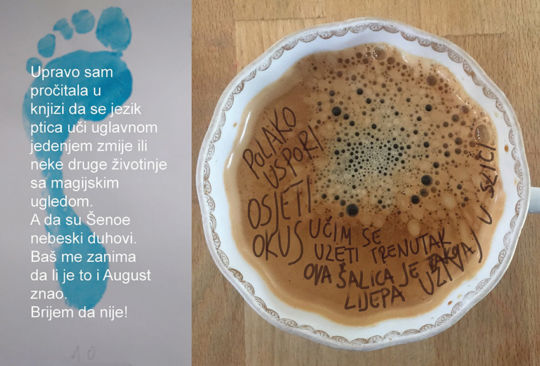 Upravo sam
pročitala u
knjizi da se jezik
ptica uči uglavnom
jedenjem zmije ili
neke druge životinje
sa magijskim
ugledom.
A da su Šenoe
nebeski duhovi.
Baš me zanima
da li je to i August
znao.
Brijem da nije!
10
POLAKO
USPORI
OSJETI
OKUS
UČIM SE
UZETI TRENUTAK
OVA ŠALICA JE
LIJEPA
UŽIVAJ
U SLICI